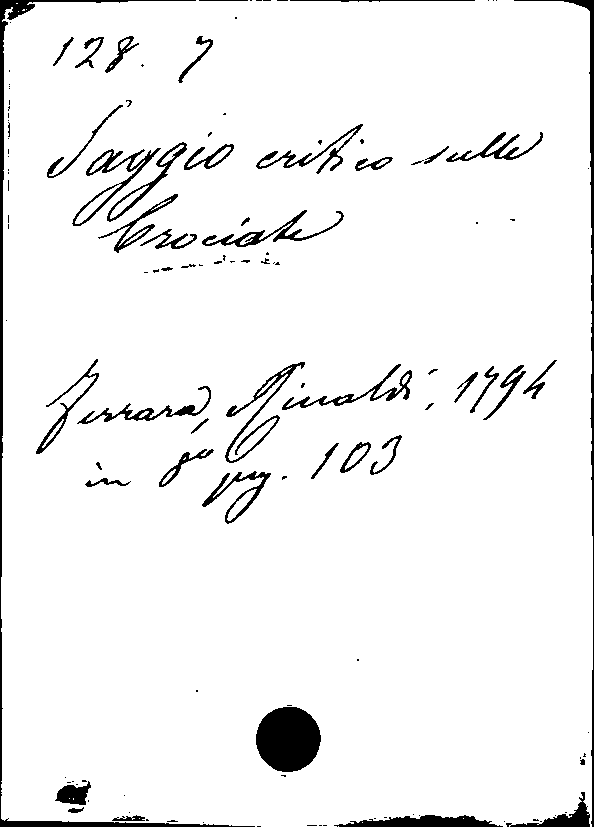 128. 7
Saggio critico sulle
Crociate
Ferrara, Rinaldi, 1794
in 8º pag. 103